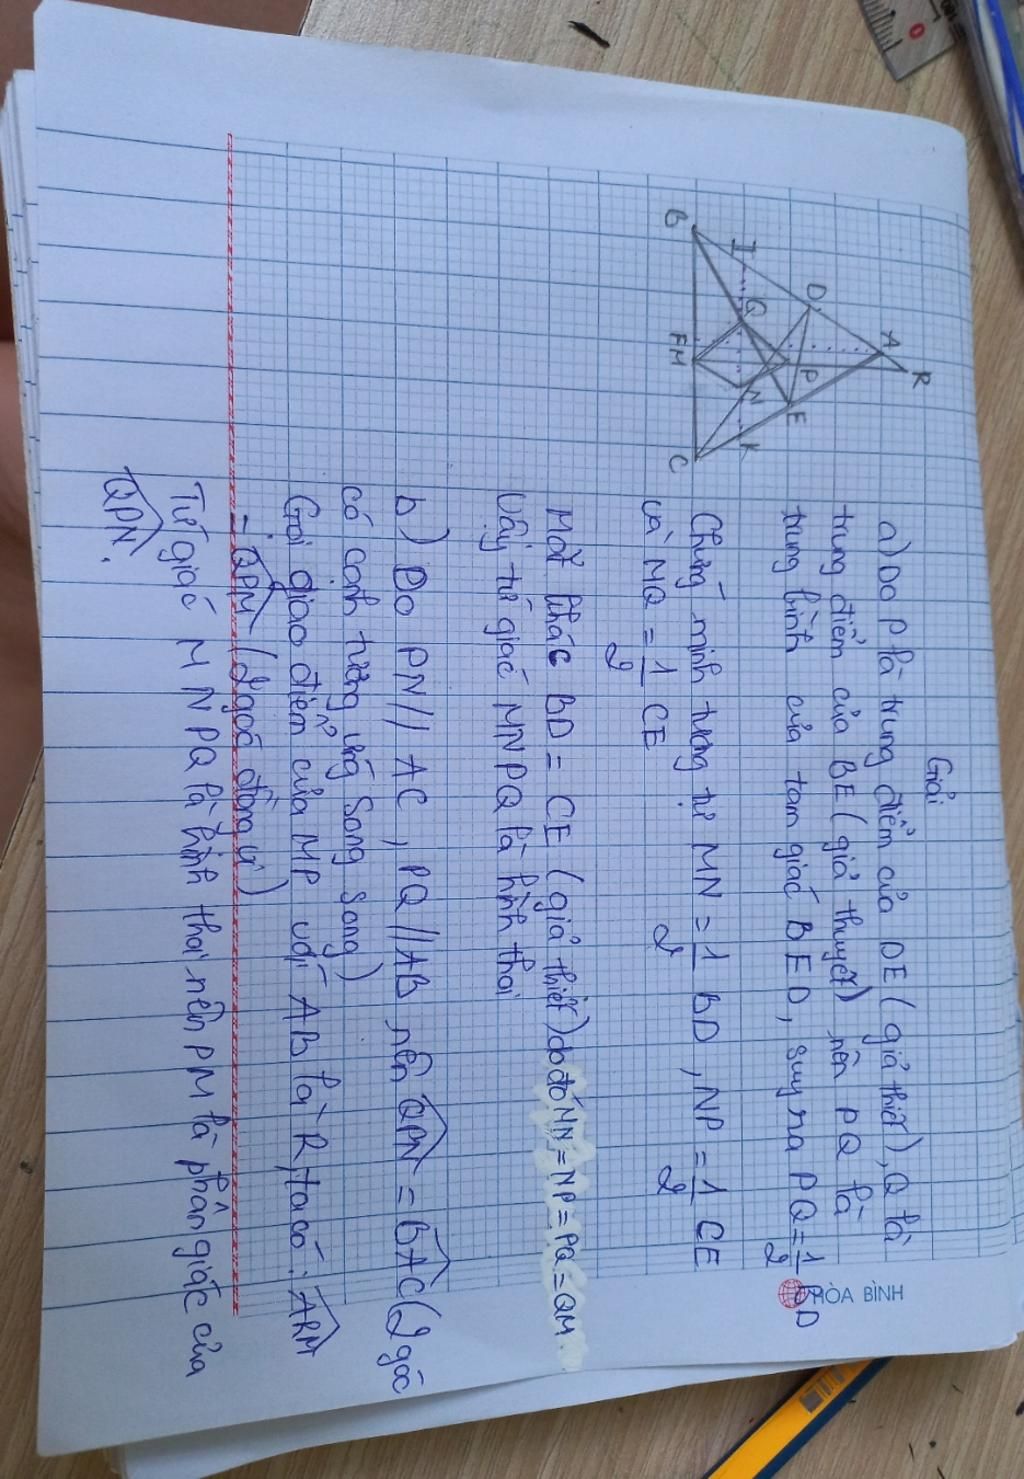 Giải
a) Do P là trung điểm của DE (giả thiết), Q là
trung điểm của BE (giả thuyết) nên PQ là
trung bình của tam giác BED, suy ra PQ = 1/2 BD
Chứng minh tương tự MN = 1/2 BD, NP = 1/2 CE
và MQ = 1/2 CE
Mặt khác BD = CE (giả thiết) do đó MN = NP = PQ = QM.
Vậy tứ giác MNPQ là hình thoi
b) Do PN // AC, PQ // AB nên QPN = BAC (2 góc
có cạnh tương ứng song song)
Gọi giao điểm của MP với AB là R, ta có: ARM
= QPM (2 góc đồng vị)
Tứ giác MNPQ là hình thoi nên PM là phân giác của
QPN.
R
A
D
P
E
I
Q
N
K
B
F
M
C
HÒA BÌNH
0